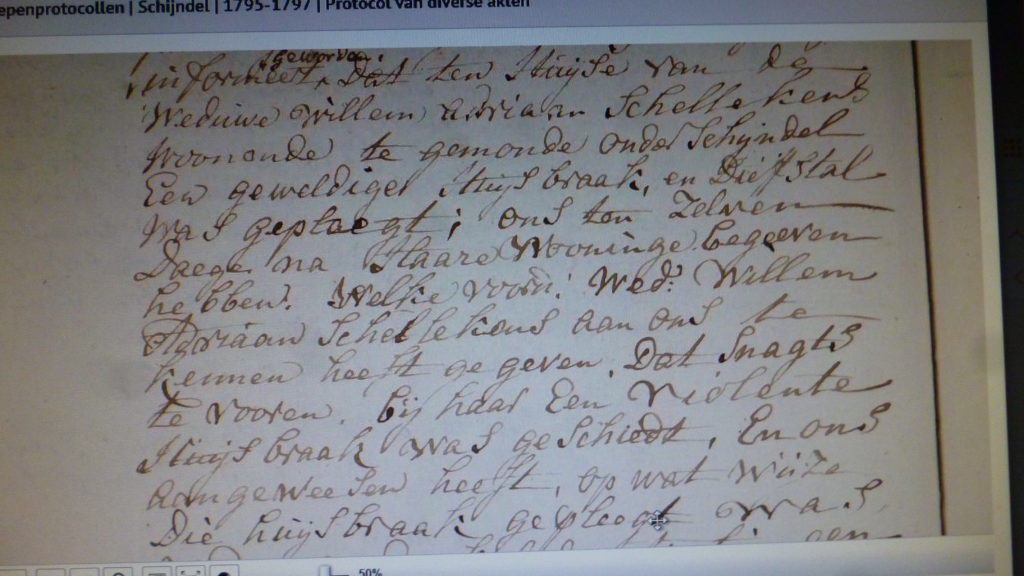 epenprotocollen | Schijndel | 1795-1797 | Protocol van diverse akten
geworden
informeert, Dat ten Huyse van de
Weduwe Willem adriaan Schellekens
Woonende te gemonde onder Schijndel
Een geweldiger Huysbraak, en Diefstal
Was gepleegt; ons ten Zelven
Daege na Haare Wooninge begeeven
hebben. Welke voorn: Wed: Willem
Adriaan Schellekens aan ons te
kennen heeft gegeven, Dat Snagts
te vooren, bij haar Een Violente
Huysbraak was geschiedt, En ons
aangeweesen heeft, op wat wijze
Die huysbraak gepleegt was,
een
50%